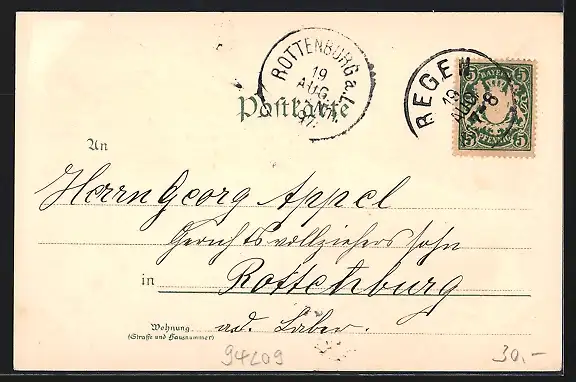 ROTTENBURG a. L.
19
AUG.
97.
REGEN
19
AUG
7-8
BAYERN
5 5
5 5
PFENNIG
Postkarte
An
Herrn Georg Appel
Gerichtsvollzieherssohn
in Rottenburg
Wohnung ad. Laber.
(Straße und Hausnummer)
94209
30,-